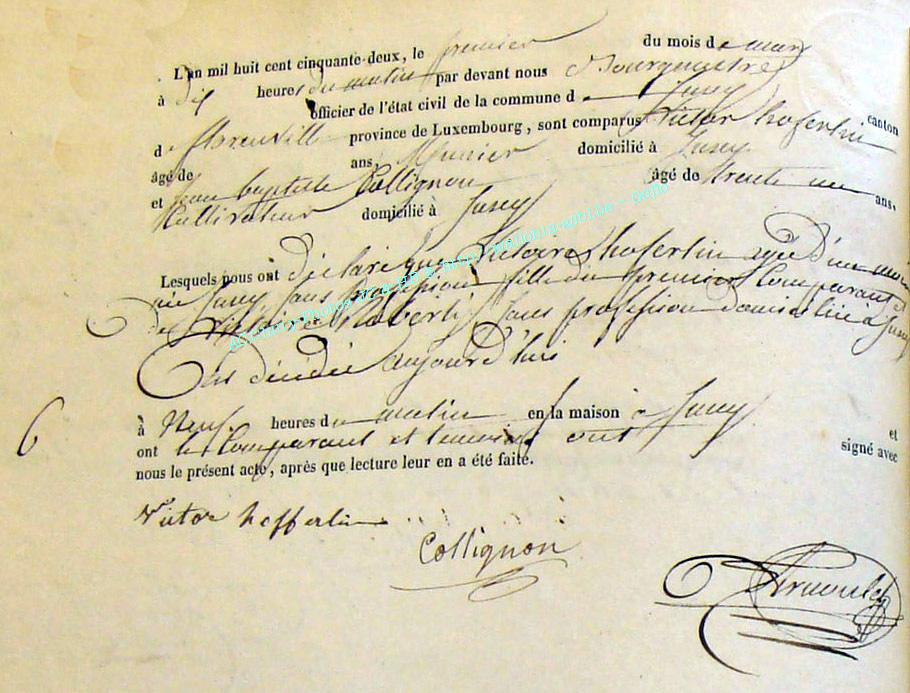 L'an mil huit cent cinquante-deux, le premier du mois de mars
à dix heures du matin par devant nous Bourgmestre
officier de l'état civil de la commune de Jusey canton
de Florenville province de Luxembourg, sont comparus Victor hoferlin
âgé de ans, Munier domicilié à Jusey
et Jean baptiste Collignon âgé de trente un ans,
Kultivateur domicilié à Jusey
Lesquels nous ont déclaré que Victoire hoferlin agée d'un mois
née Jusey sans profession fille du premier Comparant et
de Victoire Roberti sans profession domicilié à Jusey
est décédée aujourd'hui
6
à Neuf heures du matin en la maison à Jusey et
ont les Comparant et temoins ont signé avec
nous le présent acte, après que lecture leur en a été faite.
Victor hofferlin
Collignon
Arnould